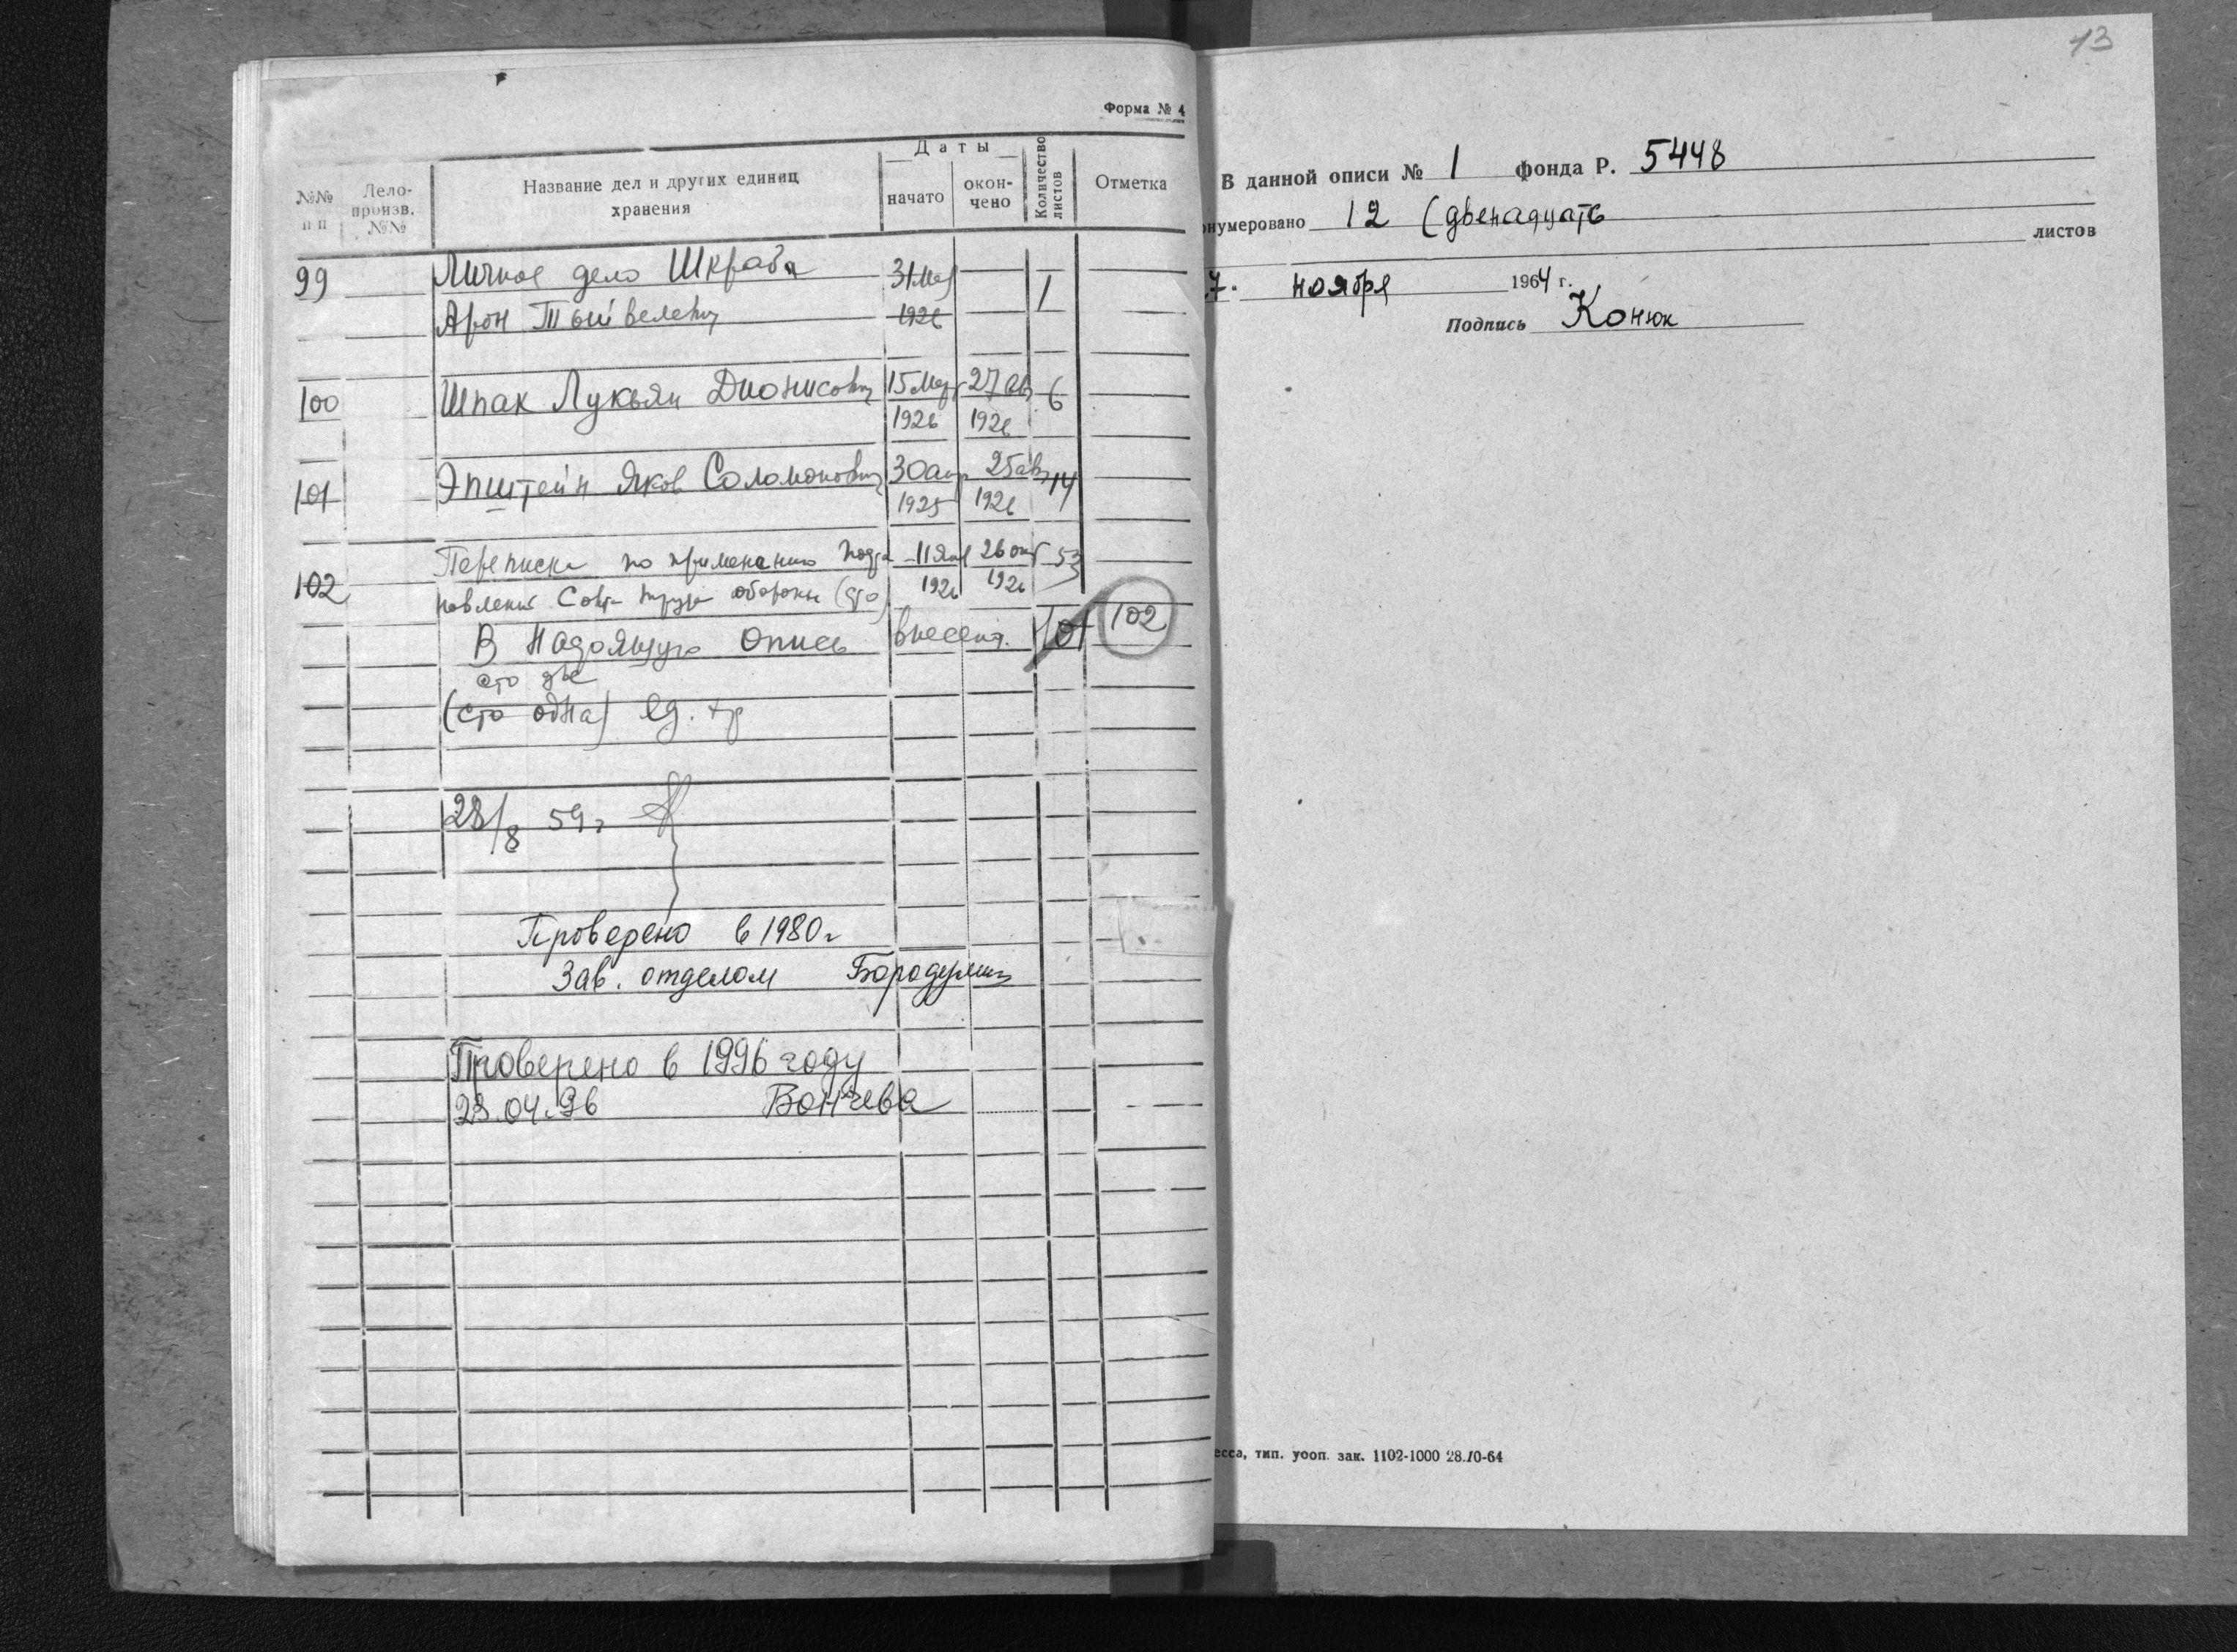 Форма № 4
№№ п п
Дело-произв. №№
Название дел и других единиц хранения
Даты
начато
окончено
Количество листов
Отметка
99 Личное дело Шкраба 31 мая 1
Арон 1926
100 Шпак Лукьян Дионисович 15 мар 27 авг 6
1926 1926
101 Эпштейн Яков Соломонович 30 апр 25 авг 14
1925 1926
102 Переписка по применению поста- 11 янв 26 окт 53
новления Совта труда обороны (сто) 1926 1926
В настоящую опись внесены 101 102
сто две
(сто одна) ед. хр
28/8 59 г
Проверено в 1980 г
Зав. отделом Бородулин
Проверено в 1996 году
23.04.96
13
В данной описи № 1 фонда Р. 5448
онумеровано 12 (двенадцать
листов
7. ноября 1964 г.
Подпись Конюк
есса, тип. уооп. зак. 1102-1000 28.10-64